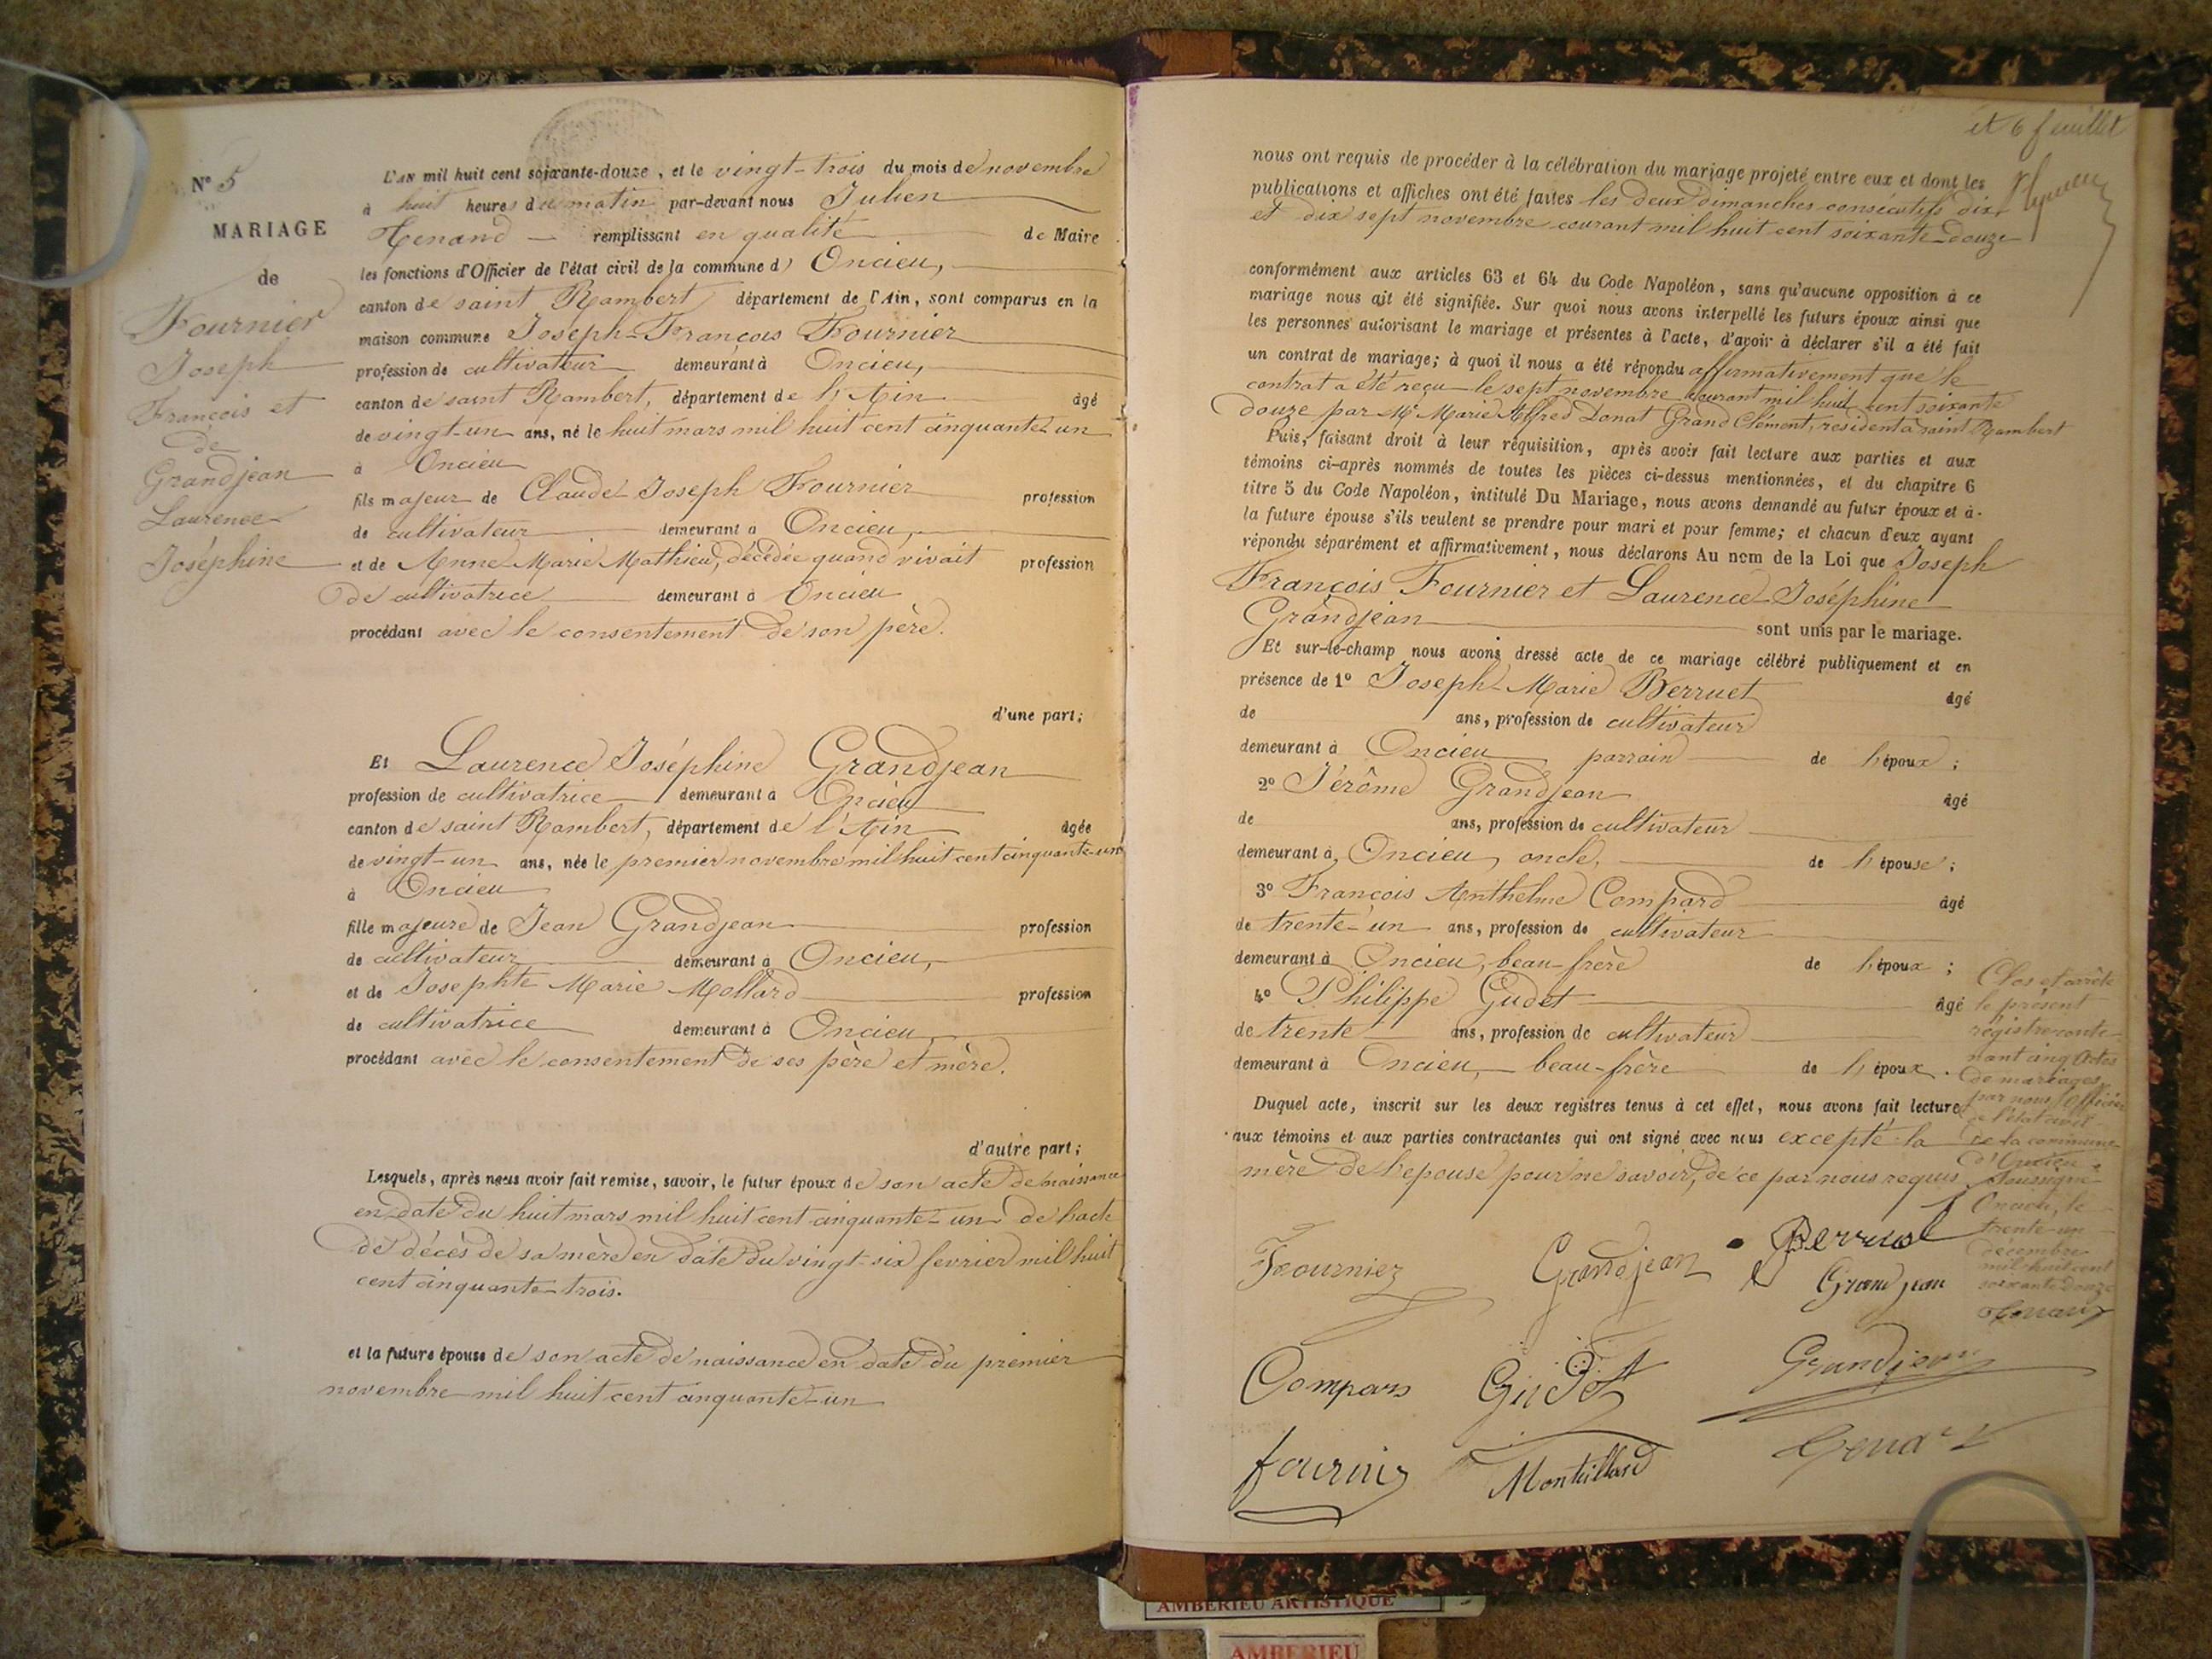 N° 5
MARIAGE
de
Fournier
Joseph
François et
de
Grandjean
Laurence
Joséphine
L'AN mil huit cent soixante-douze, et le vingt-trois du mois de novembre
à huit heures du matin par-devant nous Julien
Henand remplissant en qualité de Maire
les fonctions d'Officier de l'état civil de la commune d' Oncieu,
canton de saint Rambert département de l'Ain, sont comparus en la
maison commune Joseph-François Fournier
profession de cultivateur demeurant à Oncieu,
canton de saint Rambert, département de l'Ain âgé
de vingt-un ans, né le huit mars mil huit cent cinquante-un
à Oncieu
fils majeur de Claude Joseph Fournier profession
de cultivateur demeurant à Oncieu,
et de Anne Marie Mathieu, décédée quand vivait profession
de cultivatrice demeurant à Oncieu
procédant avec le consentement de son père.
d'une part;
Et Laurence Joséphine Grandjean
profession de cultivatrice demeurant à Oncieu
canton de saint Rambert, département de l'Ain âgée
de vingt-un ans, née le premier novembre mil huit cent cinquante-un
à Oncieu
fille majeure de Jean Grandjean profession
de cultivateur demeurant à Oncieu,
et de Josephte Marie Mollard profession
de cultivatrice demeurant à Oncieu
procédant avec le consentement de ses père et mère.
d'autre part;
Lesquels, après nous avoir fait remise, savoir, le futur époux de son acte de naissance
en date du huit mars mil huit cent cinquante-un de l'acte
de décès de sa mère en date du vingt-six fevrier mil huit
cent cinquante-trois.
et la future épouse de son acte de naissance en date du premier
novembre mil huit cent cinquante-un
et 6 feuillet
nous ont requis de procéder à la célébration du mariage projeté entre eux et dont les
publications et affiches ont été faites les deux dimanches consécutifs dix
et dix sept novembre courant mil huit cent soixante-douze
conformément aux articles 63 et 64 du Code Napoléon, sans qu'aucune opposition à ce
mariage nous ait été signifiée. Sur quoi nous avons interpellé les futurs époux ainsi que
les personnes autorisant le mariage et présentes à l'acte, d'avoir à déclarer s'il a été fait
un contrat de mariage; à quoi il nous a été répondu affirmativement que le
contrat a été reçu le sept novembre courant mil huit cent soixante
douze par Me Marie Alfred Donat Grand Clément, résident à saint Rambert
Puis, faisant droit à leur réquisition, après avoir fait lecture aux parties et aux
témoins ci-après nommés de toutes les pièces ci-dessus mentionnées, et du chapitre 6
titre 5 du Code Napoléon, intitulé Du Mariage, nous avons demandé au futur époux et à
la future épouse s'ils veulent se prendre pour mari et pour femme; et chacun d'eux ayant
répondu séparément et affirmativement, nous déclarons Au nom de la Loi que Joseph
François Fournier et Laurence Joséphine
Grandjean sont unis par le mariage.
Et sur-le-champ nous avons dressé acte de ce mariage célébré publiquement et en
présence de 1° Joseph-Marie Berruet âgé
de ans, profession de cultivateur
demeurant à Oncieu parrain de l'époux;
2° Jérôme Grandjean âgé
de ans, profession de cultivateur
demeurant à Oncieu, oncle, de l'épouse;
3° François Anthelme Compard âgé
de trente-un ans, profession de cultivateur
demeurant à Oncieu, beau-frère de l'époux;
4° Philippe Gudet âgé
de trente ans, profession de cultivateur
demeurant à Oncieu, beau-frère de l'époux.
Duquel acte, inscrit sur les deux registres tenus à cet effet, nous avons fait lecture
aux témoins et aux parties contractantes qui ont signé avec nous excepté la
mère de l'epouse pour ne savoir, de ce par nous requis
Clos et arrêté
le présent
registre conte-
nant cinq Actes
de mariages
par nous Officier
de l'état civil
de la commune
d'Oncieu
soussigné
Oncieu, le
trente-un
décembre
mil huit cent
soixante douze
Henand
Fournier Grandjean Berruet
Grandjean
Compard Gudet Grandjean
fournier Montillard Henand
AMBERIEU ARTISTIQUE
AMBERIEU